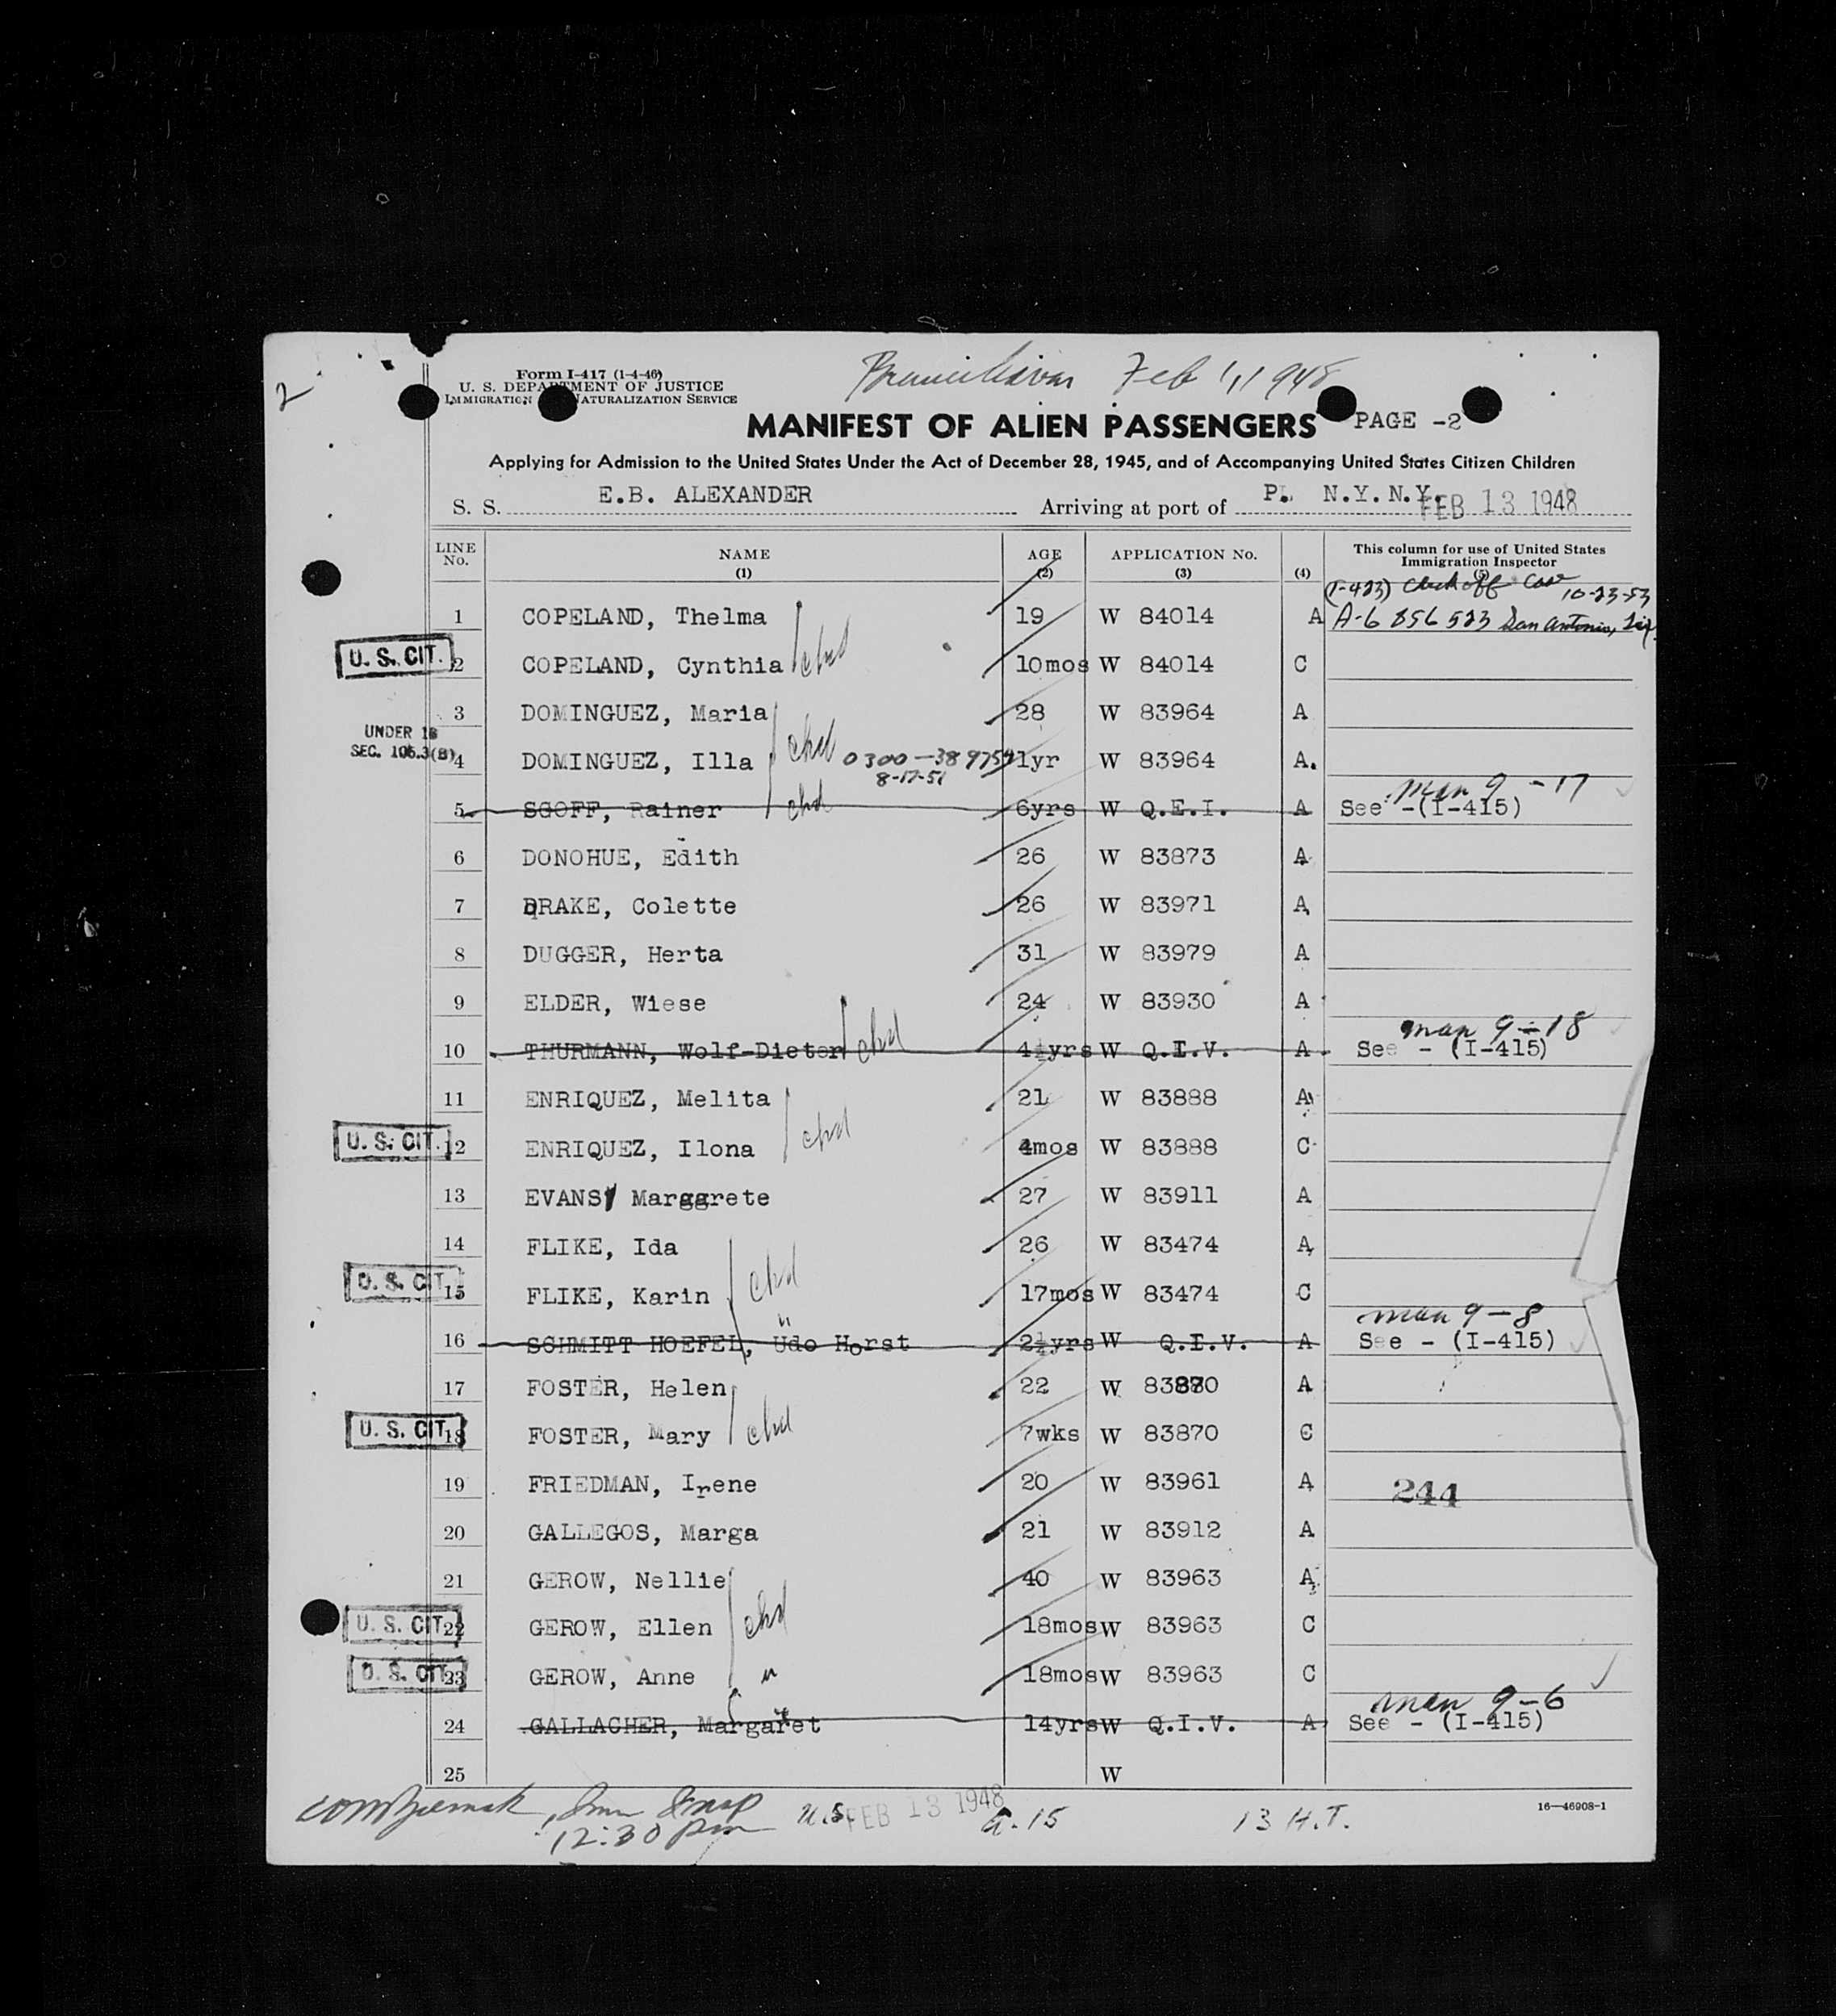 2
Form I-417 (1-4-46)
U. S. DEPARTMENT OF JUSTICE
IMMIGRATION NATURALIZATION SERVICE
Feb 1, 1948
MANIFEST OF ALIEN PASSENGERS PAGE -2
Applying for Admission to the United States Under the Act of December 28, 1945, and of Accompanying United States Citizen Children
S. S. E.B. ALEXANDER Arriving at port of P. N.Y.N.Y. FEB 13 1948
LINE No. NAME (1) AGE (2) APPLICATION No. (3) (4) This column for use of United States Immigration Inspector (5)
(I-423) Check off Case 10-23-53
1 COPELAND, Thelma 19 W 84014 A A-6 856 523 San Antonio,
U. S. CIT. 2 COPELAND, Cynthia chd 10mos W 84014 C
3 DOMINGUEZ, Maria 28 W 83964 A
UNDER 16
SEC. 105.3(B) 4 DOMINGUEZ, Illa chd 0300-38 9754 1yr W 83964 A.
8-17-51
man 9-17
5 SGOFF, Rainer chd 6yrs W Q.E.I. A See -(I-415)
6 DONOHUE, Edith 26 W 83873 A
7 DRAKE, Colette 26 W 83971 A
8 DUGGER, Herta 31 W 83979 A
9 ELDER, Wiese 24 W 83930 A
man 9-18
10 THURMANN, Wolf-Dieter chd 4½yrs W Q.I.V. A See - (I-415)
11 ENRIQUEZ, Melita 21 W 83888 A
U. S. CIT. 12 ENRIQUEZ, Ilona chd 4mos W 83888 C
13 EVANS, Marggrete 27 W 83911 A
14 FLIKE, Ida 26 W 83474 A
U. S. CIT. 15 FLIKE, Karin chd 17mos W 83474 C
man 9-8
16 SCHMITT HOEFEL, Udo Horst 2½yrs W Q.I.V. A See - (I-415)
17 FOSTER, Helen 22 W 83870 A
U. S. CIT. 18 FOSTER, Mary chd 7wks W 83870 C
19 FRIEDMAN, Irene 20 W 83961 A 244
20 GALLEGOS, Marga 21 W 83912 A
21 GEROW, Nellie 40 W 83963 A
U. S. CIT. 22 GEROW, Ellen chd 18mos W 83963 C
U. S. CIT. 23 GEROW, Anne " 18mos W 83963 C
man 9-6
24 GALLACHER, Margaret 14yrs W Q.I.V. A See - (I-415)
25 W
U.S. FEB 13 1948 a. 15 13 H.T. 16—46908-1
12:30 pm